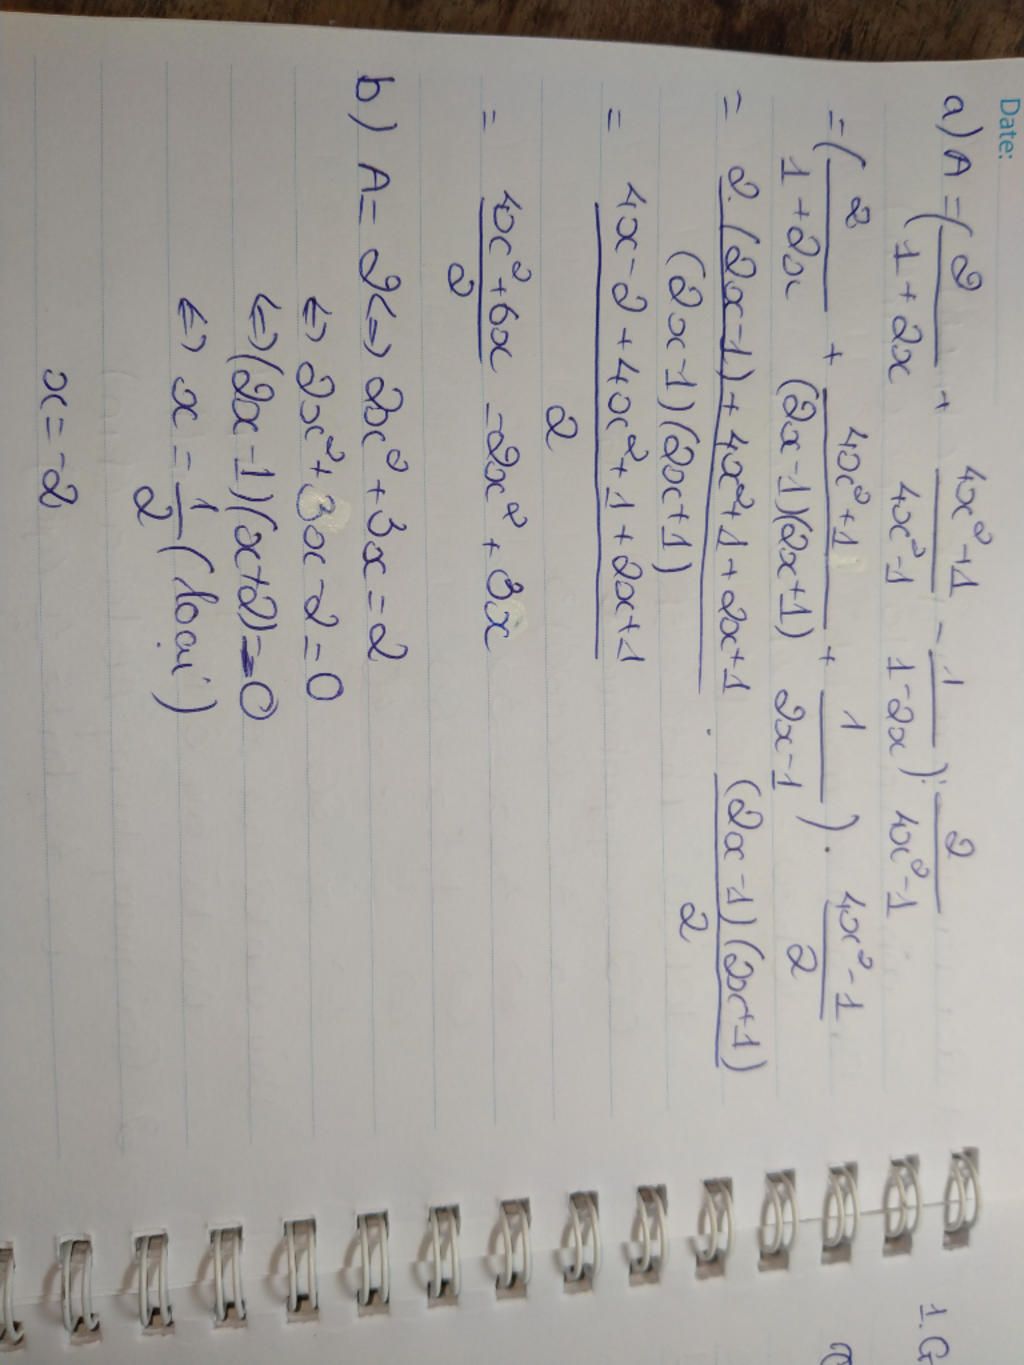 Date:
a) A = ( 2/(1+2x) + (4x²+1)/(4x²-1) - 1/(1-2x) ) : 2/(4x²-1)
= ( 2/(1+2x) + (4x²+1)/((2x-1)(2x+1)) + 1/(2x-1) ) . (4x²-1)/2
= (2.(2x-1)+4x²+1+2x+1)/((2x-1)(2x+1)) . ((2x-1)(2x+1))/2
= (4x-2+4x²+1+2x+1)/2
= (4x²+6x)/2 = 2x²+3x
b) A = 2 <=> 2x²+3x=2
<=> 2x²+3x-2=0
<=> (2x-1)(x+2)=0
<=> x = 1/2 (loại)
x = -2
1.G